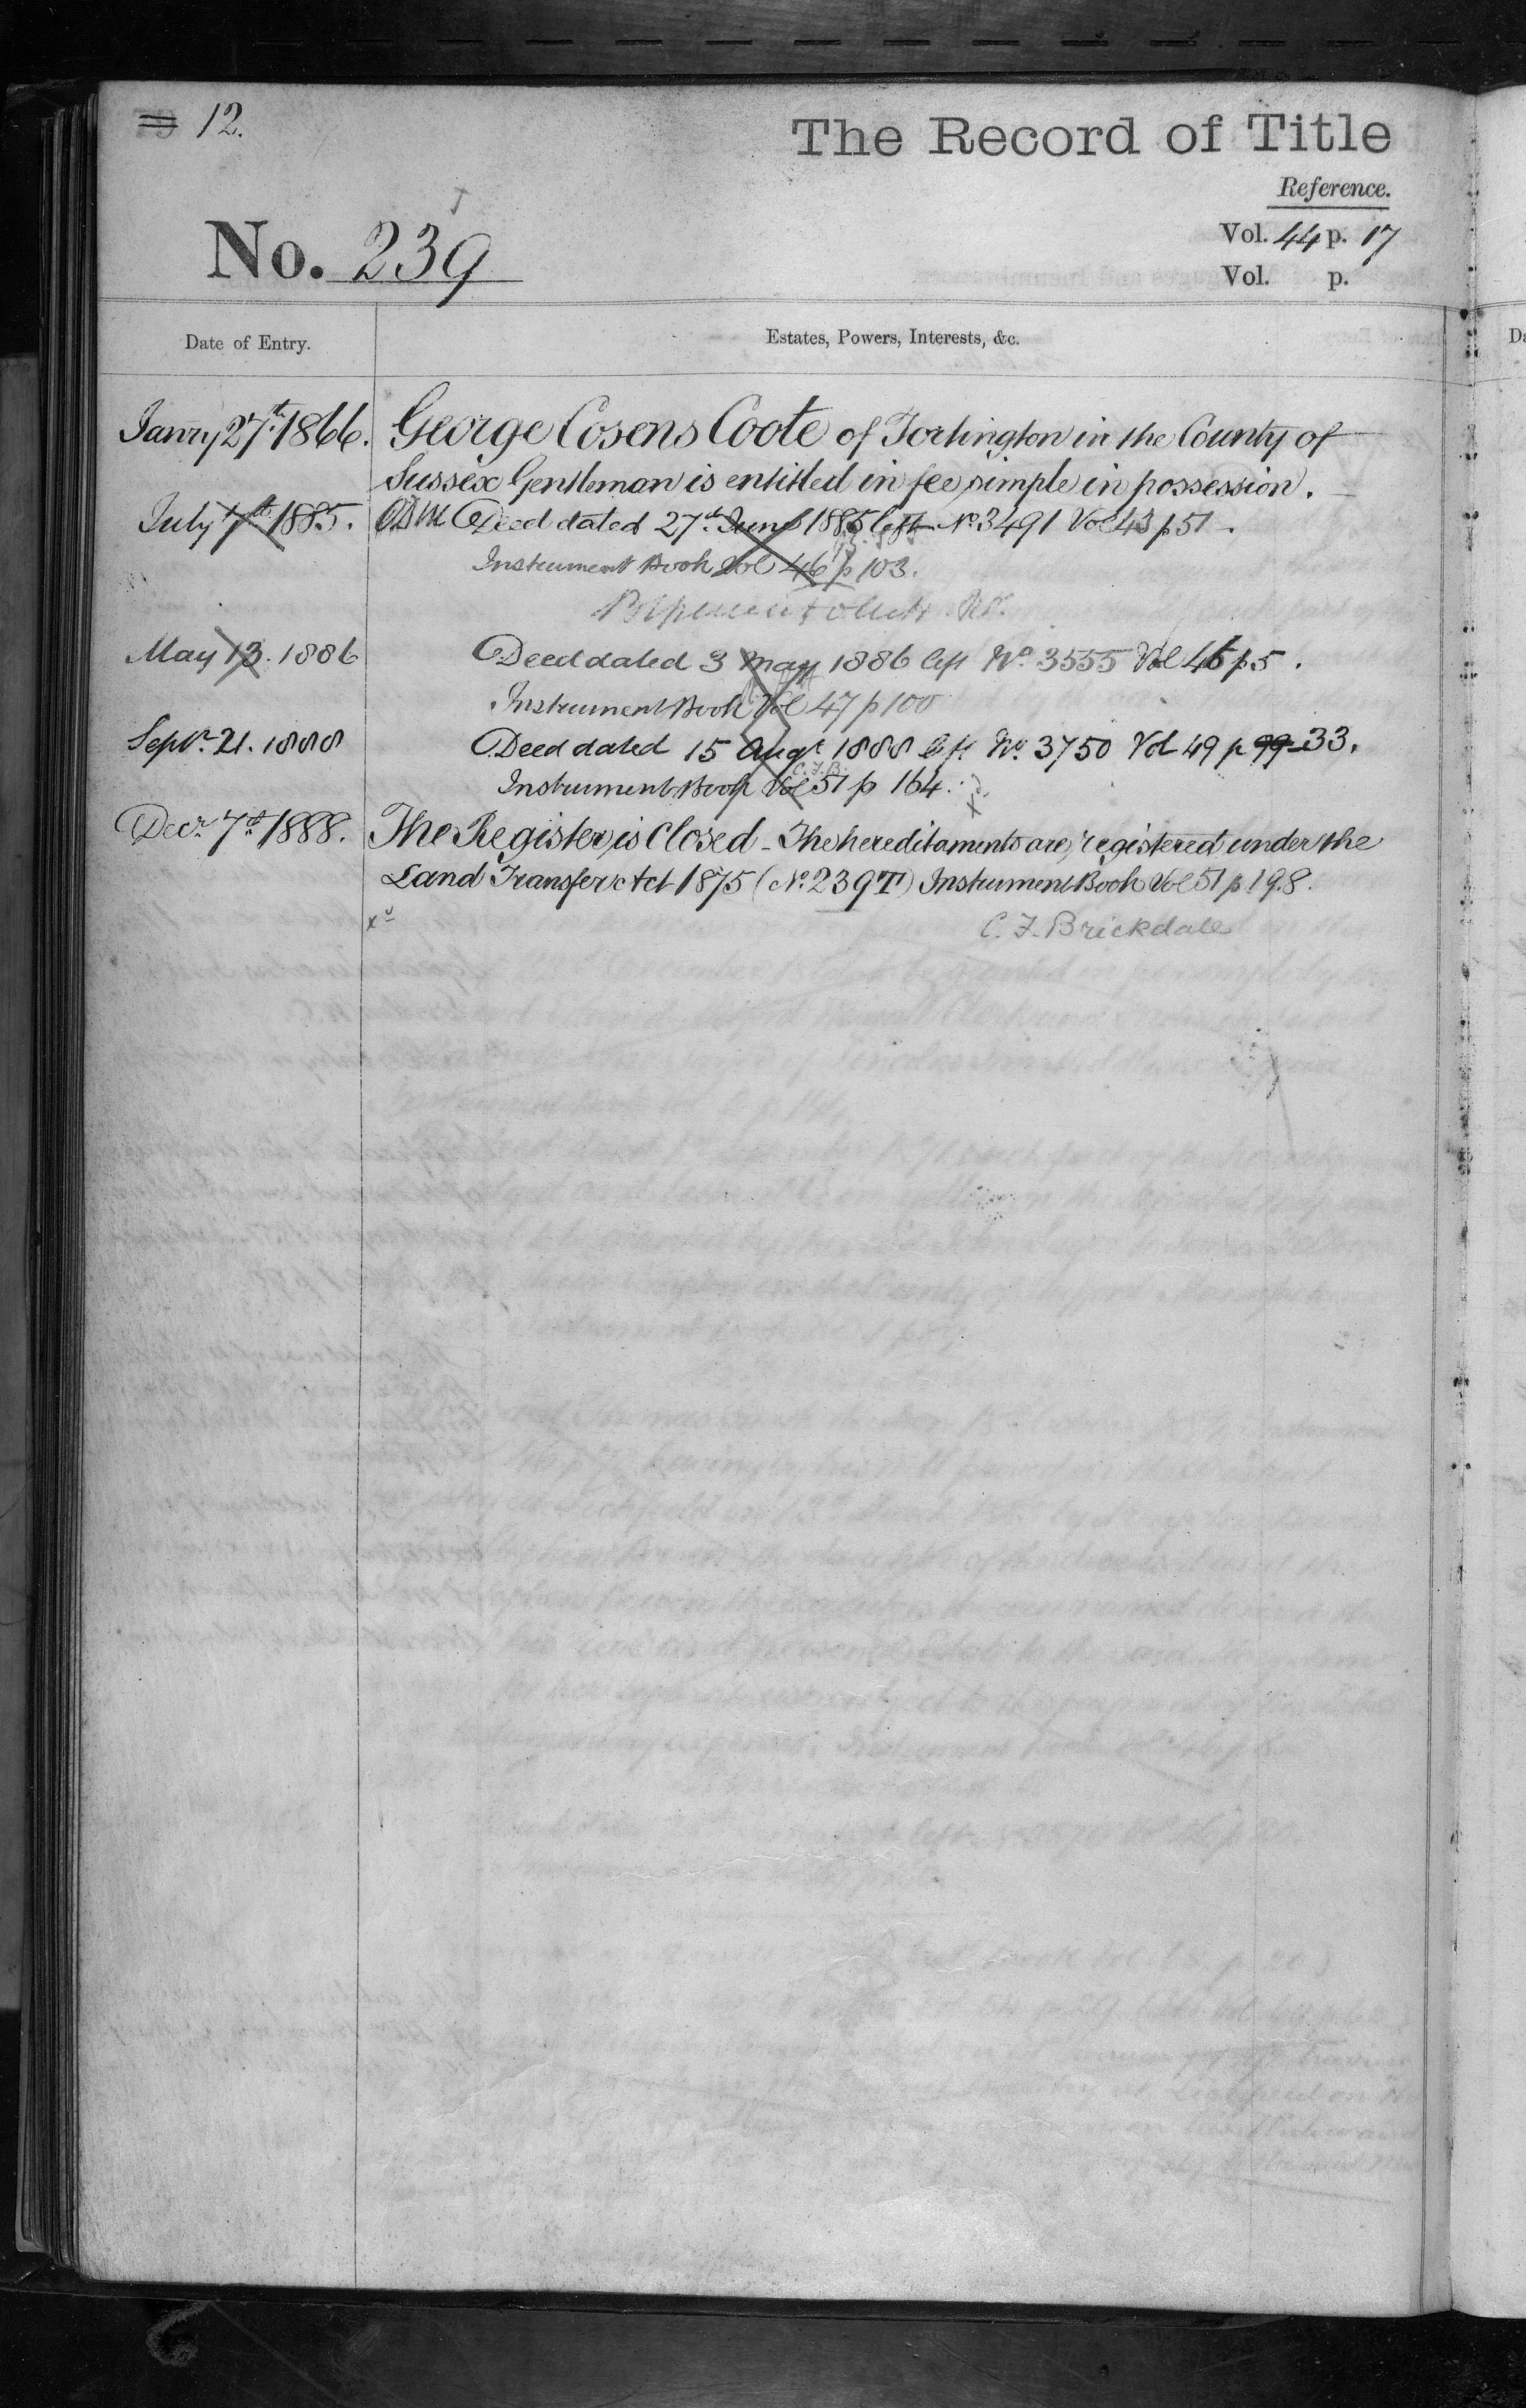 12.
The Record of Title
Reference.
No. 239
T
Vol. 44 p. 17
Vol. p.
Date of Entry.
Estates, Powers, Interests, &c.
Janry 27th 1866. George Cosens Coote of Tortington in the County of
Sussex Gentleman is entitled in fee simple in possession.
July 7th 1885. Deed dated 27th June 1885 left No. 3491 Vol 43 p 51.
Instrument Book Vol 46 p 103.
May 13. 1886 Deed dated 3 May 1886 left No. 3555 Vol 45 p 5.
Instrument Book Vol 47 p 100
Sepr. 21. 1888 Deed dated 15 Augt 1888 left No. 3750 Vol 49 p 99 33.
C.F.B.
Instrument Book Vol 51 p 164.
Decr. 7th 1888. The Register is Closed - The hereditaments are registered under the
Land Transfer Act 1875 (No. 239T) Instrument Book Vol 51 p 198.
C. F. Brickdale